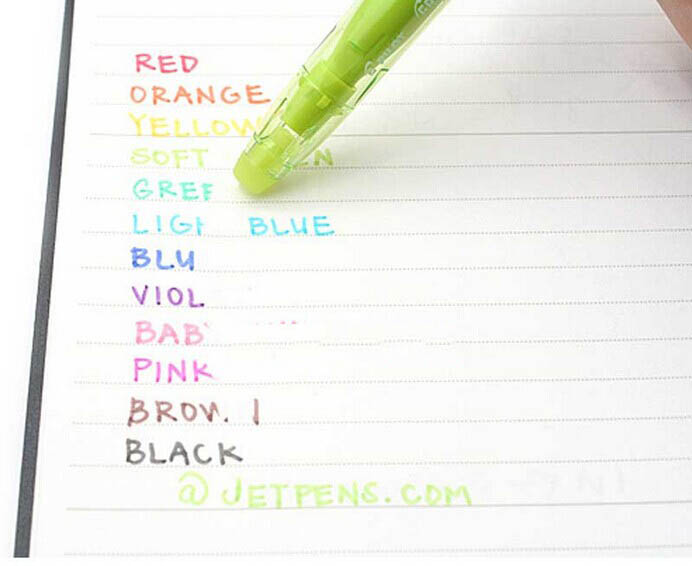 RED
ORANGE
YELLOW
SOFT EN
GRE
LIGH BLUE
BLU
VIOL
BAB
PINK
BROW
BLACK
@JETPENS.COM
PILOT